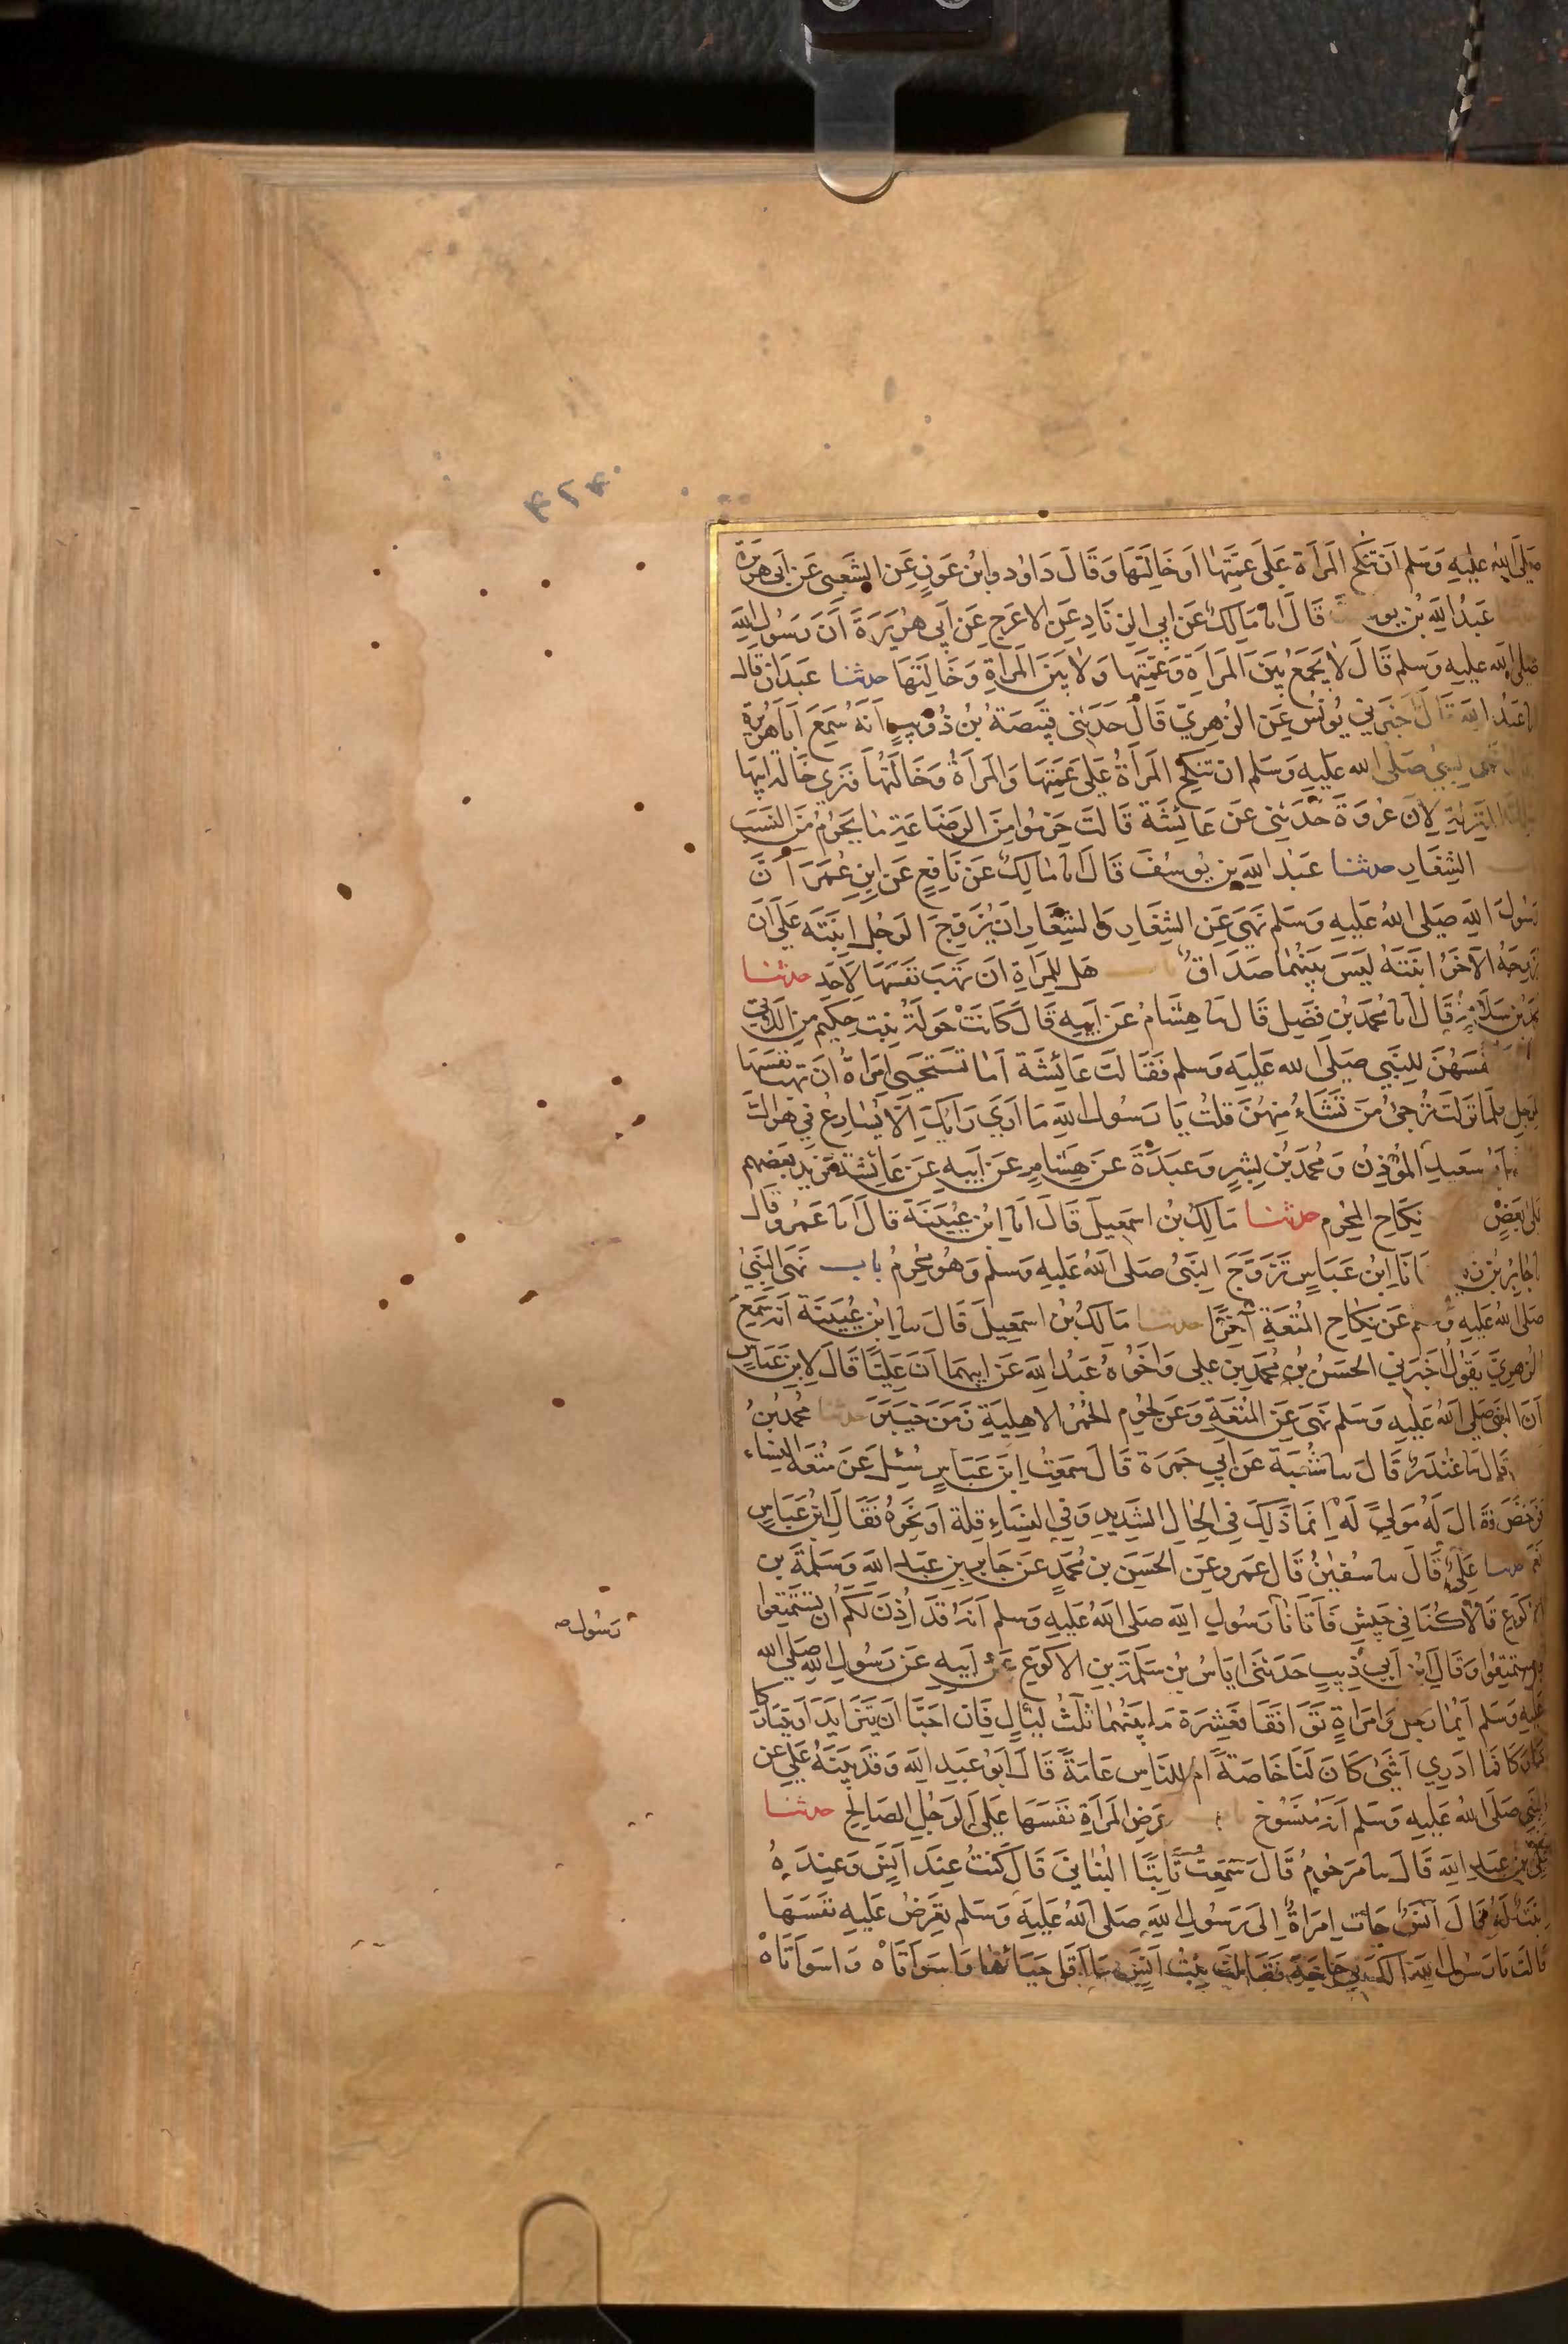 صلى الله عليه وسلم ان تنكح المرأة على عمتها او خالتها وقال داود وابن عون عن الشعبي عن ابي هريرة
عبد الله بن يوسف قال انا مالك عن ابي الزناد عن الاعرج عن ابي هريرة أن رسول الله
صلى الله عليه وسلم قال لا يجمع بين المرأة وعمتها ولا بين المرأة وخالتها حدثنا عبدان قال
انا عبد الله قال اخبرني يونس عن الزهري قال حدثني قبيصة بن ذويب انه سمع أبا هريرة
نهى النبي صلى الله عليه وسلم ان تنكح المرأة على عمتها والمرأة وخالتها فنري خالة ابيها
بتلك المنزلة لان عروة حدثني عن عائشة قالت حرموا من الرضاعة ما يحرم من النسب
الشغار حدثنا عبد الله بن يوسف قال انا مالك عن نافع عن ابن عمر أن
رسول الله صلى الله عليه وسلم نهى عن الشغار والشغار ان يزوج الرجل ابنته على ان
يزوجه الآخر ابنته ليس بينهما صداق باب هل للمرأة ان تهب نفسها لاحد حدثنا
محمد بن سلام قال انا محمد بن فضيل قال نا هشام عن ابيه قال كانت خولة بنت حكيم من اللائي
نفسهن للنبي صلى الله عليه وسلم فقالت عائشة أما تستحيي امرأة ان تهب نفسها
لرجل فلما نزلت ترجئ من تشاء منهن قلت يا رسول الله ما أرى ربك إلا يسارع في هواك
ابو سعيد المؤذن ومحمد بن بشر وعبدة عن هشام عن ابيه عن عائشة يزيد بعضهم
على بعض نكاح المحرم حدثنا مالك بن اسمعيل قال انا ابن عيينة قال انا عمرو قال
نا جابر بن زيد انا ابن عباس تزوج النبي صلى الله عليه وسلم وهو محرم باب نهى النبي
صلى الله عليه وسلم عن نكاح المتعة آخرا حدثنا مالك بن اسمعيل قال نا ابن عيينة انه سمع
الزهري يقول اخبرني الحسن بن محمد بن علي واخوه عبد الله عن ابيهما أن عليا قال لابن عباس
أن النبي صلى الله عليه وسلم نهى عن المتعة وعن لحوم الحمر الاهلية زمن خيبر حدثنا محمد بن
قال نا غندر قال نا شعبة عن ابي جمرة قال سمعت ابن عباس سئل عن متعة النساء
فرخص فقال له مولى له انما ذلك في الحال الشديد وفي النساء قلة او نحوه فقال ابن عباس
نعم حدثنا علي قال نا سفين قال عمرو عن الحسن بن محمد عن جابر بن عبد الله وسلمة بن
الاكوع قالا كنا في جيش فأتانا رسول الله صلى الله عليه وسلم انه قد أذن لكم ان تستمتعوا
رسول
فاستمتعوا وقال ابن ابي ذيب حدثني اياس بن سلمة بن الاكوع عن ابيه عن رسول الله صلى الله
عليه وسلم أيما رجل وامرأة توافقا فعشرة ما بينهما ثلث ليال فان احبا ان يتزايدا او يتتاركا
تتاركا فما ادري أشئ كان لنا خاصة ام للناس عامة قال ابو عبد الله وقد بينه علي عن
النبي صلى الله عليه وسلم أنه منسوخ باب عرض المرأة نفسها على الرجل الصالح حدثنا
علي بن عبد الله قال نا مرحوم قال سمعت ثابتا البناني قال كنت عند أنس وعنده
ابنة له قال أنس جات امرأة الى رسول الله صلى الله عليه وسلم تعرض عليه نفسها
قالت يا رسول الله ألك بي حاجة فقالت بنت أنس ما أقل حياءها واسوأتاه واسوأتاه